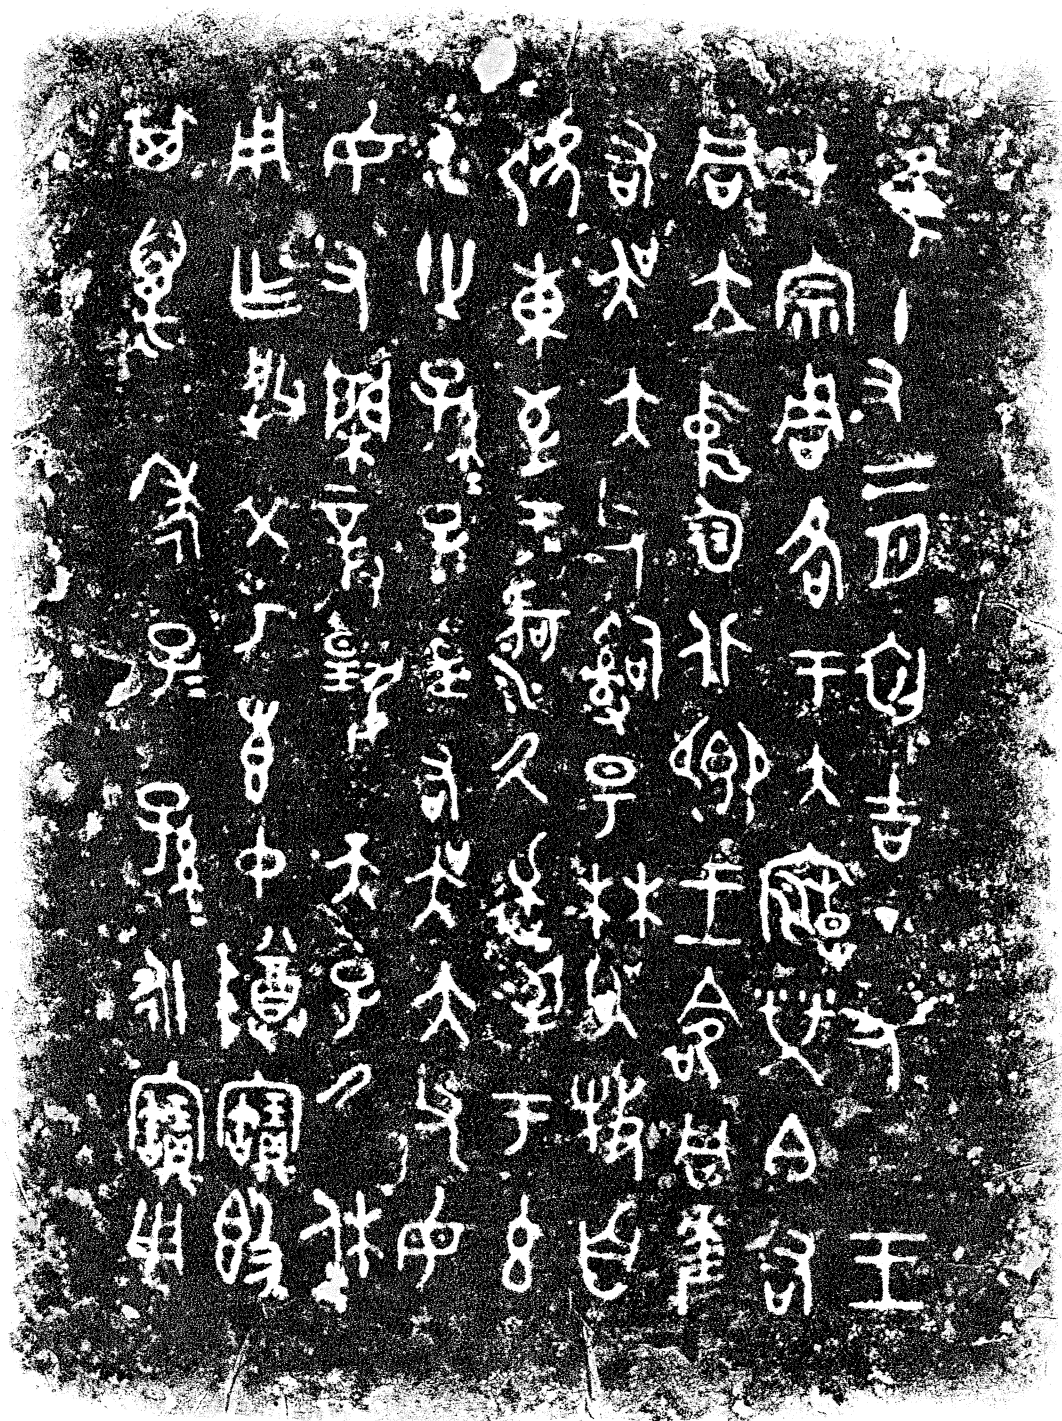 隹十又二月初吉丁丑王
才宗周各于大廟榮白右
同立中廷北卿王命同差
右吳大父𤔲昜林吳牧自
淲東至于河氒逆至于玄
水世孫孫子子差右吳大父毋
女又閑對揚天子氒休
用乍朕文考叀中尊寶𣪘
其萬年子子孫孫永寶用